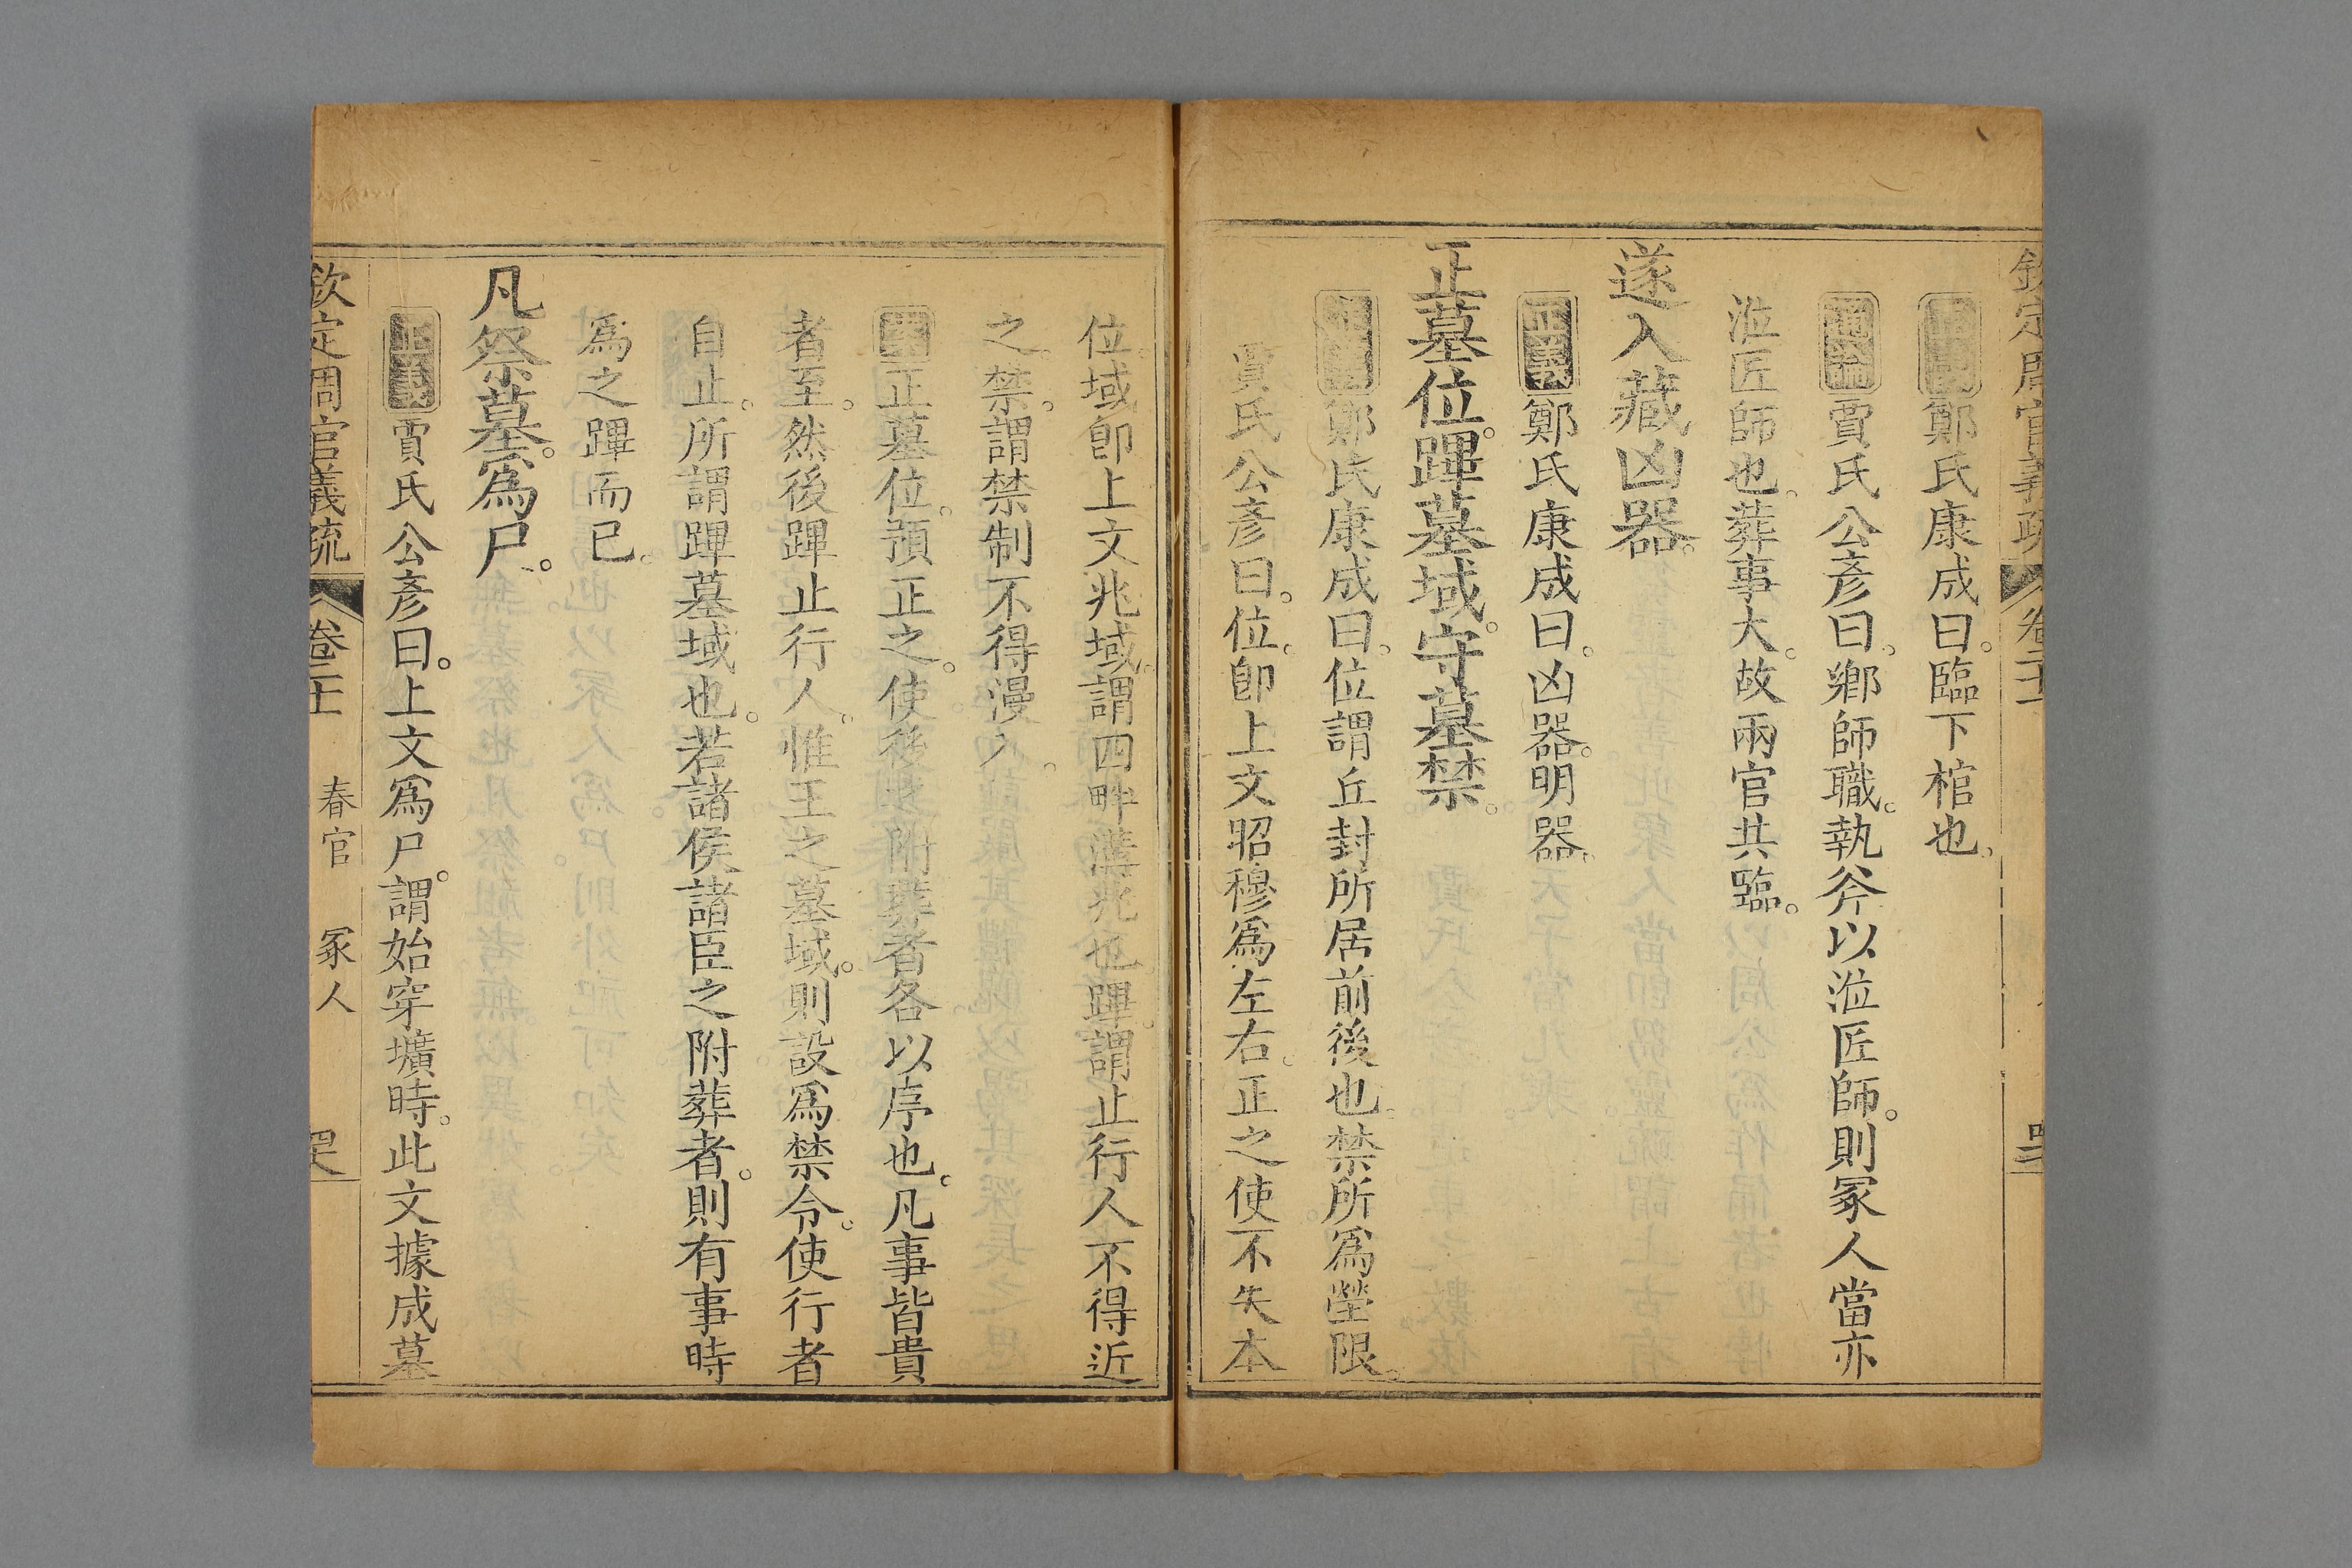 欽定周官義疏 卷二十一
正義鄭氏康成曰。臨下棺也。
通論賈氏公彥曰。鄉師職。執斧以涖匠師。則冢人當亦
涖匠師也。葬事大。故兩官共臨。
遂入藏凶器。
正義鄭氏康成曰。凶器。明器。
正墓位。蹕墓域。守墓禁。
正義鄭氏康成曰。位謂丘封所居前後也。禁所爲塋限。
賈氏公彥曰。位。卽上文昭穆爲左右。正之使不失本
位。域卽上文兆域。謂四畔溝兆也。蹕謂止行人不得近
之。禁。謂禁制不得漫入。
正墓位。預正之。使後之附葬者各以序也。凡事皆貴
者至。然後蹕止行人。惟王之墓域。則設爲禁令。使行者
自止。所謂蹕墓域也。若諸侯諸臣之附葬者。則有事時
爲之蹕而已。
凡祭墓。爲尸。
正義賈氏公彥曰。上文爲尸。謂始穿壙時。此文據成墓
欽定周官義疏 卷二十一 春官 冢人